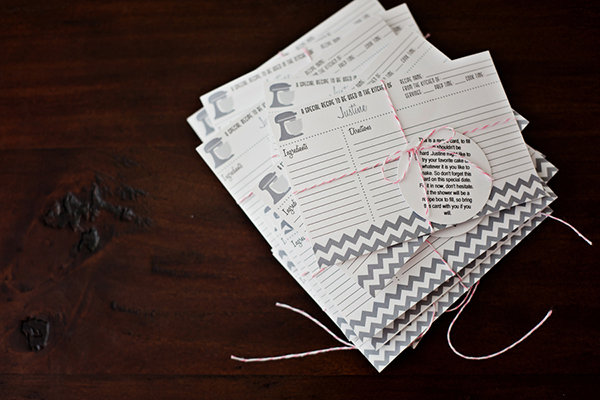 A SPECIAL RECIPE TO BE USED IN THE KITCHEN OF
Justine
RECIPE NAME
FROM THE KITCHEN OF
SERVINGS PREP TIME COOK TIME
Ingredients
Directions
This is a card, to fill
shouldn't be
hard. Justine might like to
try your favorite cake or
whatever it is you like to
make. So don't forget this
card on this special date.
Fill it in now, don't hesitate.
At the shower will be a
recipe box to fill, so bring
the card with you if you
will.
A SPECIAL RECIPE TO BE USED IN
Ingredients
Ingredients